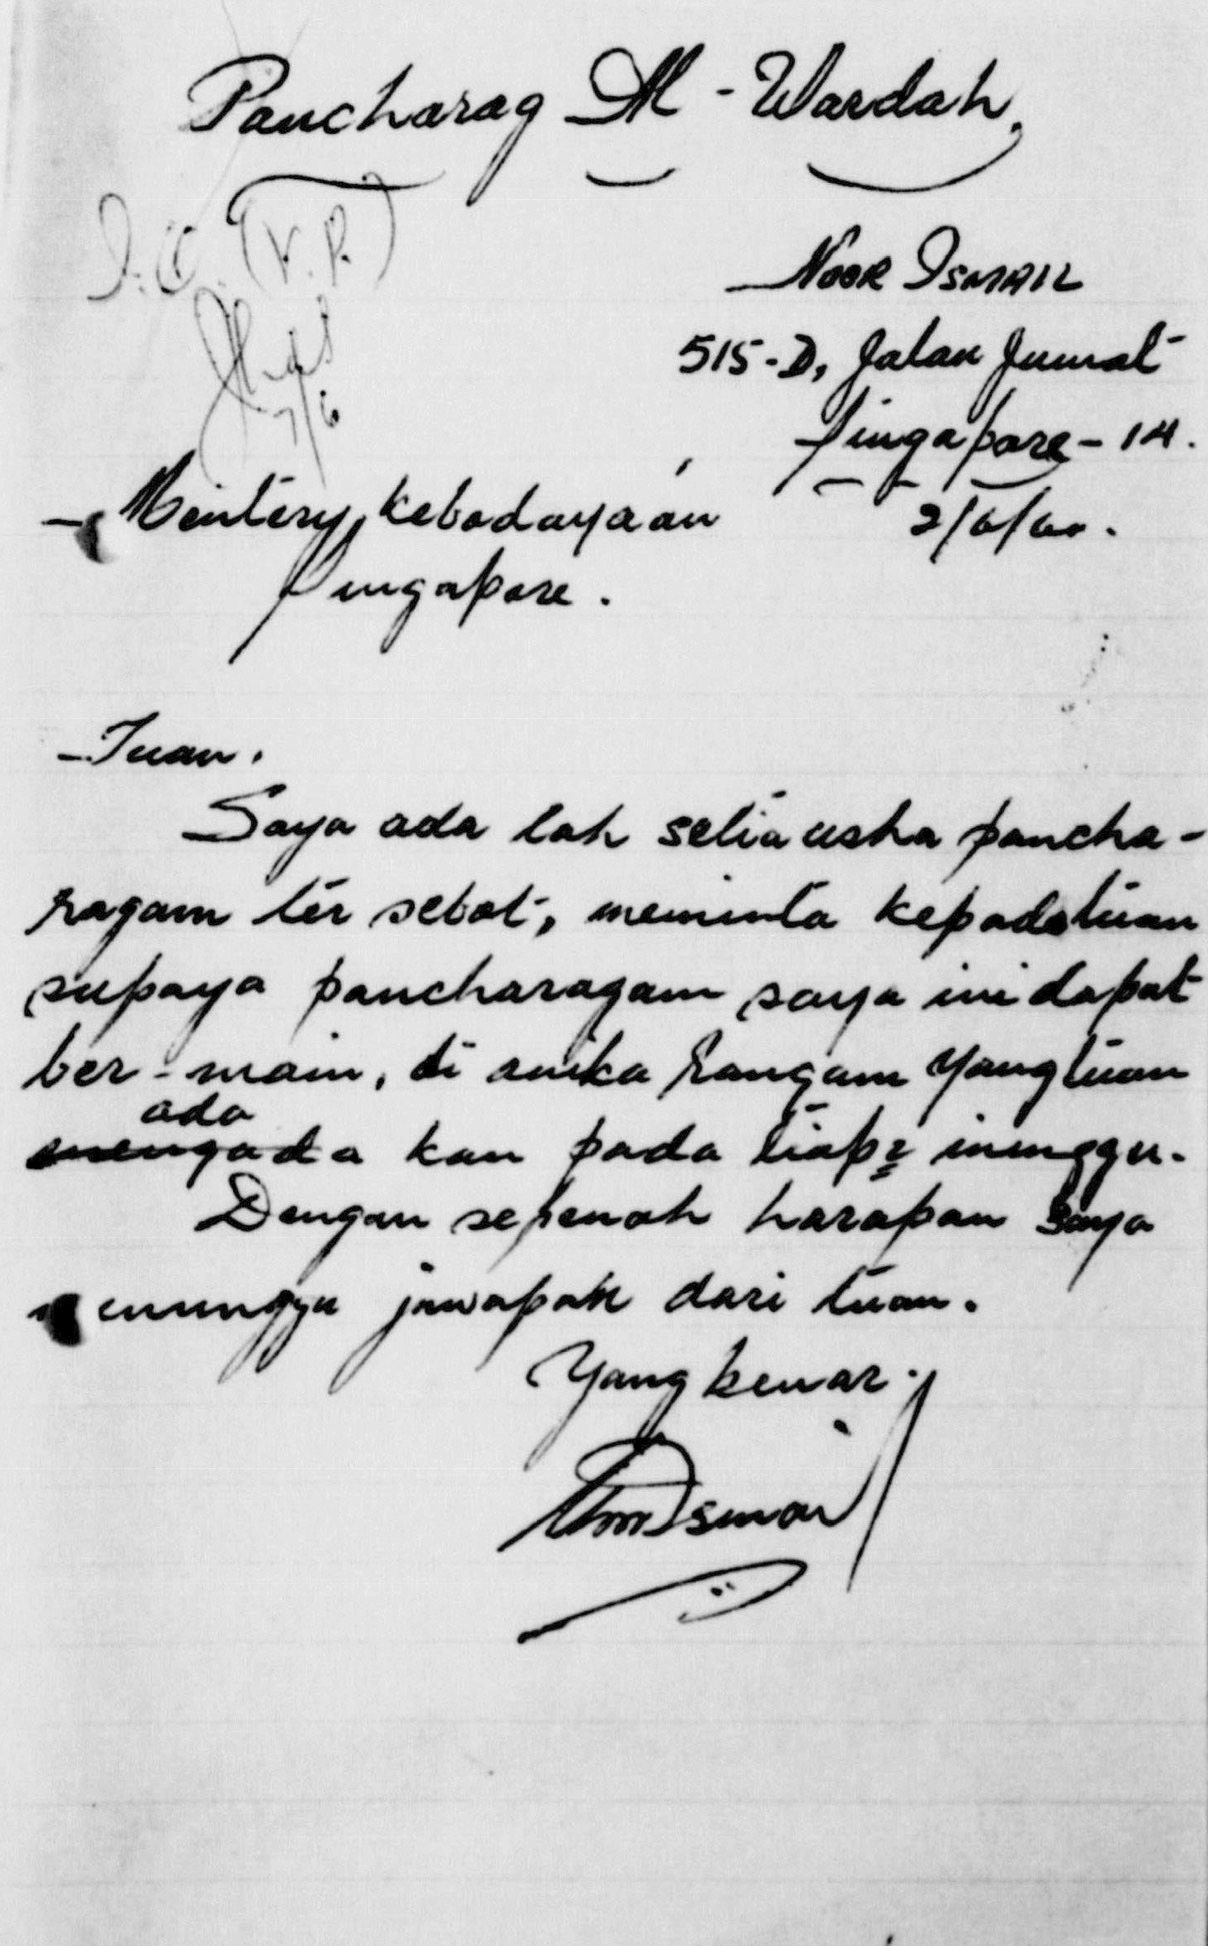 Pancharag Al-Wardah,
(V.R.)
Noor Ismail
515-D, Jalan Jumat
Singapore-14.
7/6
Mentery, kebodayaan
2/6/60.
Singapore.
Tuan.
Saya ada lah setia usha pancha-
ragam ter sebot, meminta kepada tuan
supaya pancharagam saya ini dapat
ber-main, di anika rangam yang tuan
ada
mengada kan pada tiap2 minggu.
Dengan sepenoh harapan saya
menunggu jawapan dari tuan.
Yang benar.
Noor Ismail